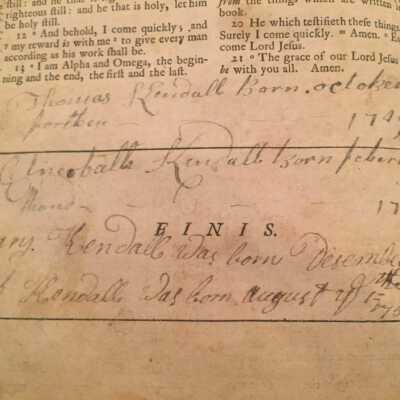 still: and he that is
righteous still: and he that is holy, let him
be holy still.
12 And behold, I come quickly; and
my reward is with me to give every man
according as his work shall be.
13 I am Alpha and Omega, the begin-
ning and the end, the first and the last.
from the things which are written
book.
20 He which testifieth these things
Surely I come quickly. Amen.
come Lord Jesus.
21 The grace of our Lord Jesus
be with you all. Amen.
Thomas Kendall Born october
17
Kendall born
17
FINIS.
Kendall was born Desember
Kendall was born august ye